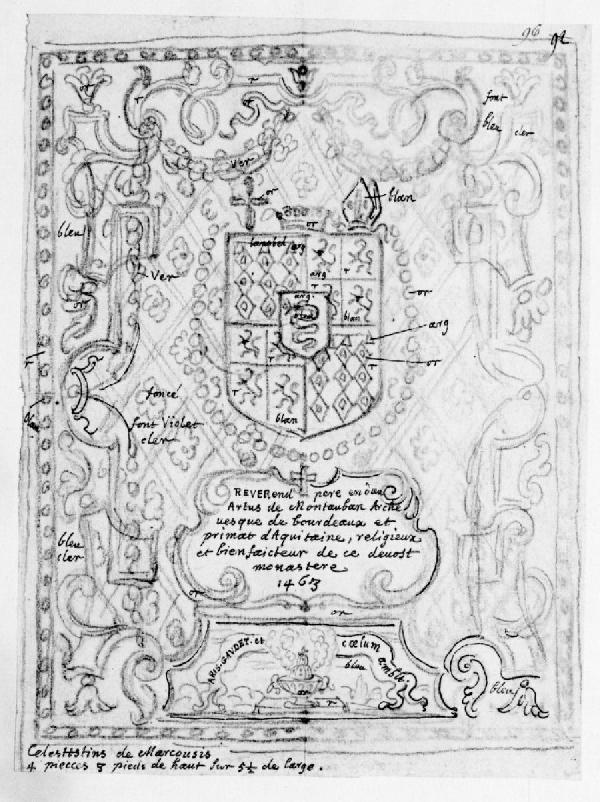 96 92
or
r
r
font
bleu cler
ver
or
blan
or
bleu
lambel arg
arg
r
r
ver
or
arg.
blan
or
arg
or
r
r
r
blan
foncé
font violet
cler
REVEREND pere en dieu
Artus de Montauban Arche
uesque de bourdeaux et
primat d'Aquitaine, religieux
et bienfaicteur de ce deuost
monastere
1463
bleu
cler
or
or
ARIS GAVDET. et cœlum ambit
bleu
or
r
bleu
Celestistins de Marcousis
4 piecces 8 pieds de haut sur 5½ de large.